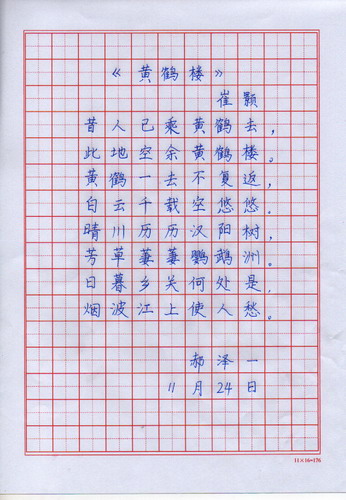 《黄鹤楼》
崔颢
昔人已乘黄鹤去，
此地空余黄鹤楼。
黄鹤一去不复返，
白云千载空悠悠。
晴川历历汉阳树，
芳草萋萋鹦鹉洲。
日暮乡关何处是，
烟波江上使人愁。
郝泽一
11月24日
11×16=176